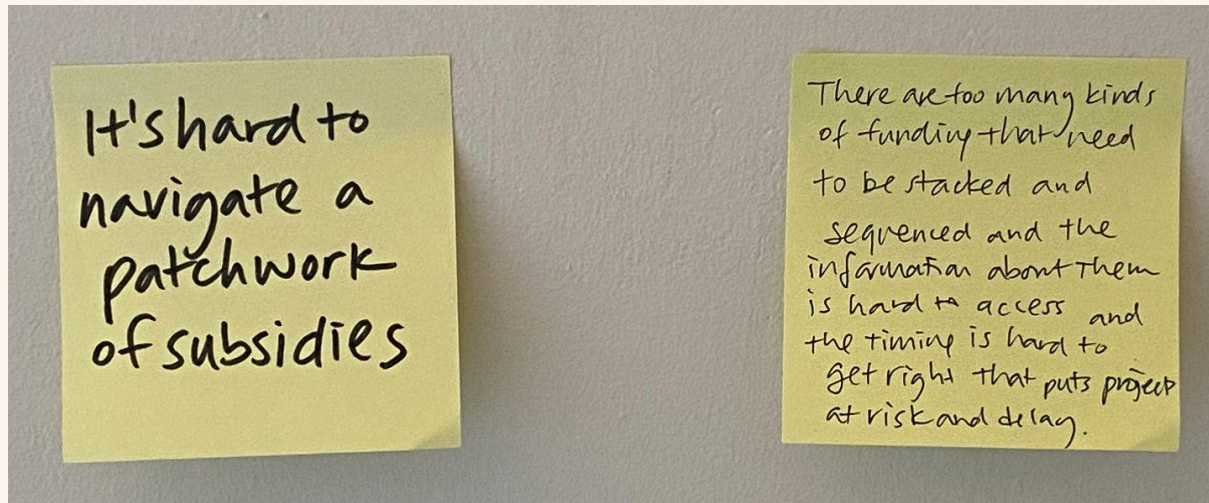 It's hard to
navigate a
patchwork
of subsidies
There are too many kinds
of funding that need
to be stacked and
sequenced and the
information about them
is hard to access and
the timing is hard to
get right that puts project
at risk and delay.